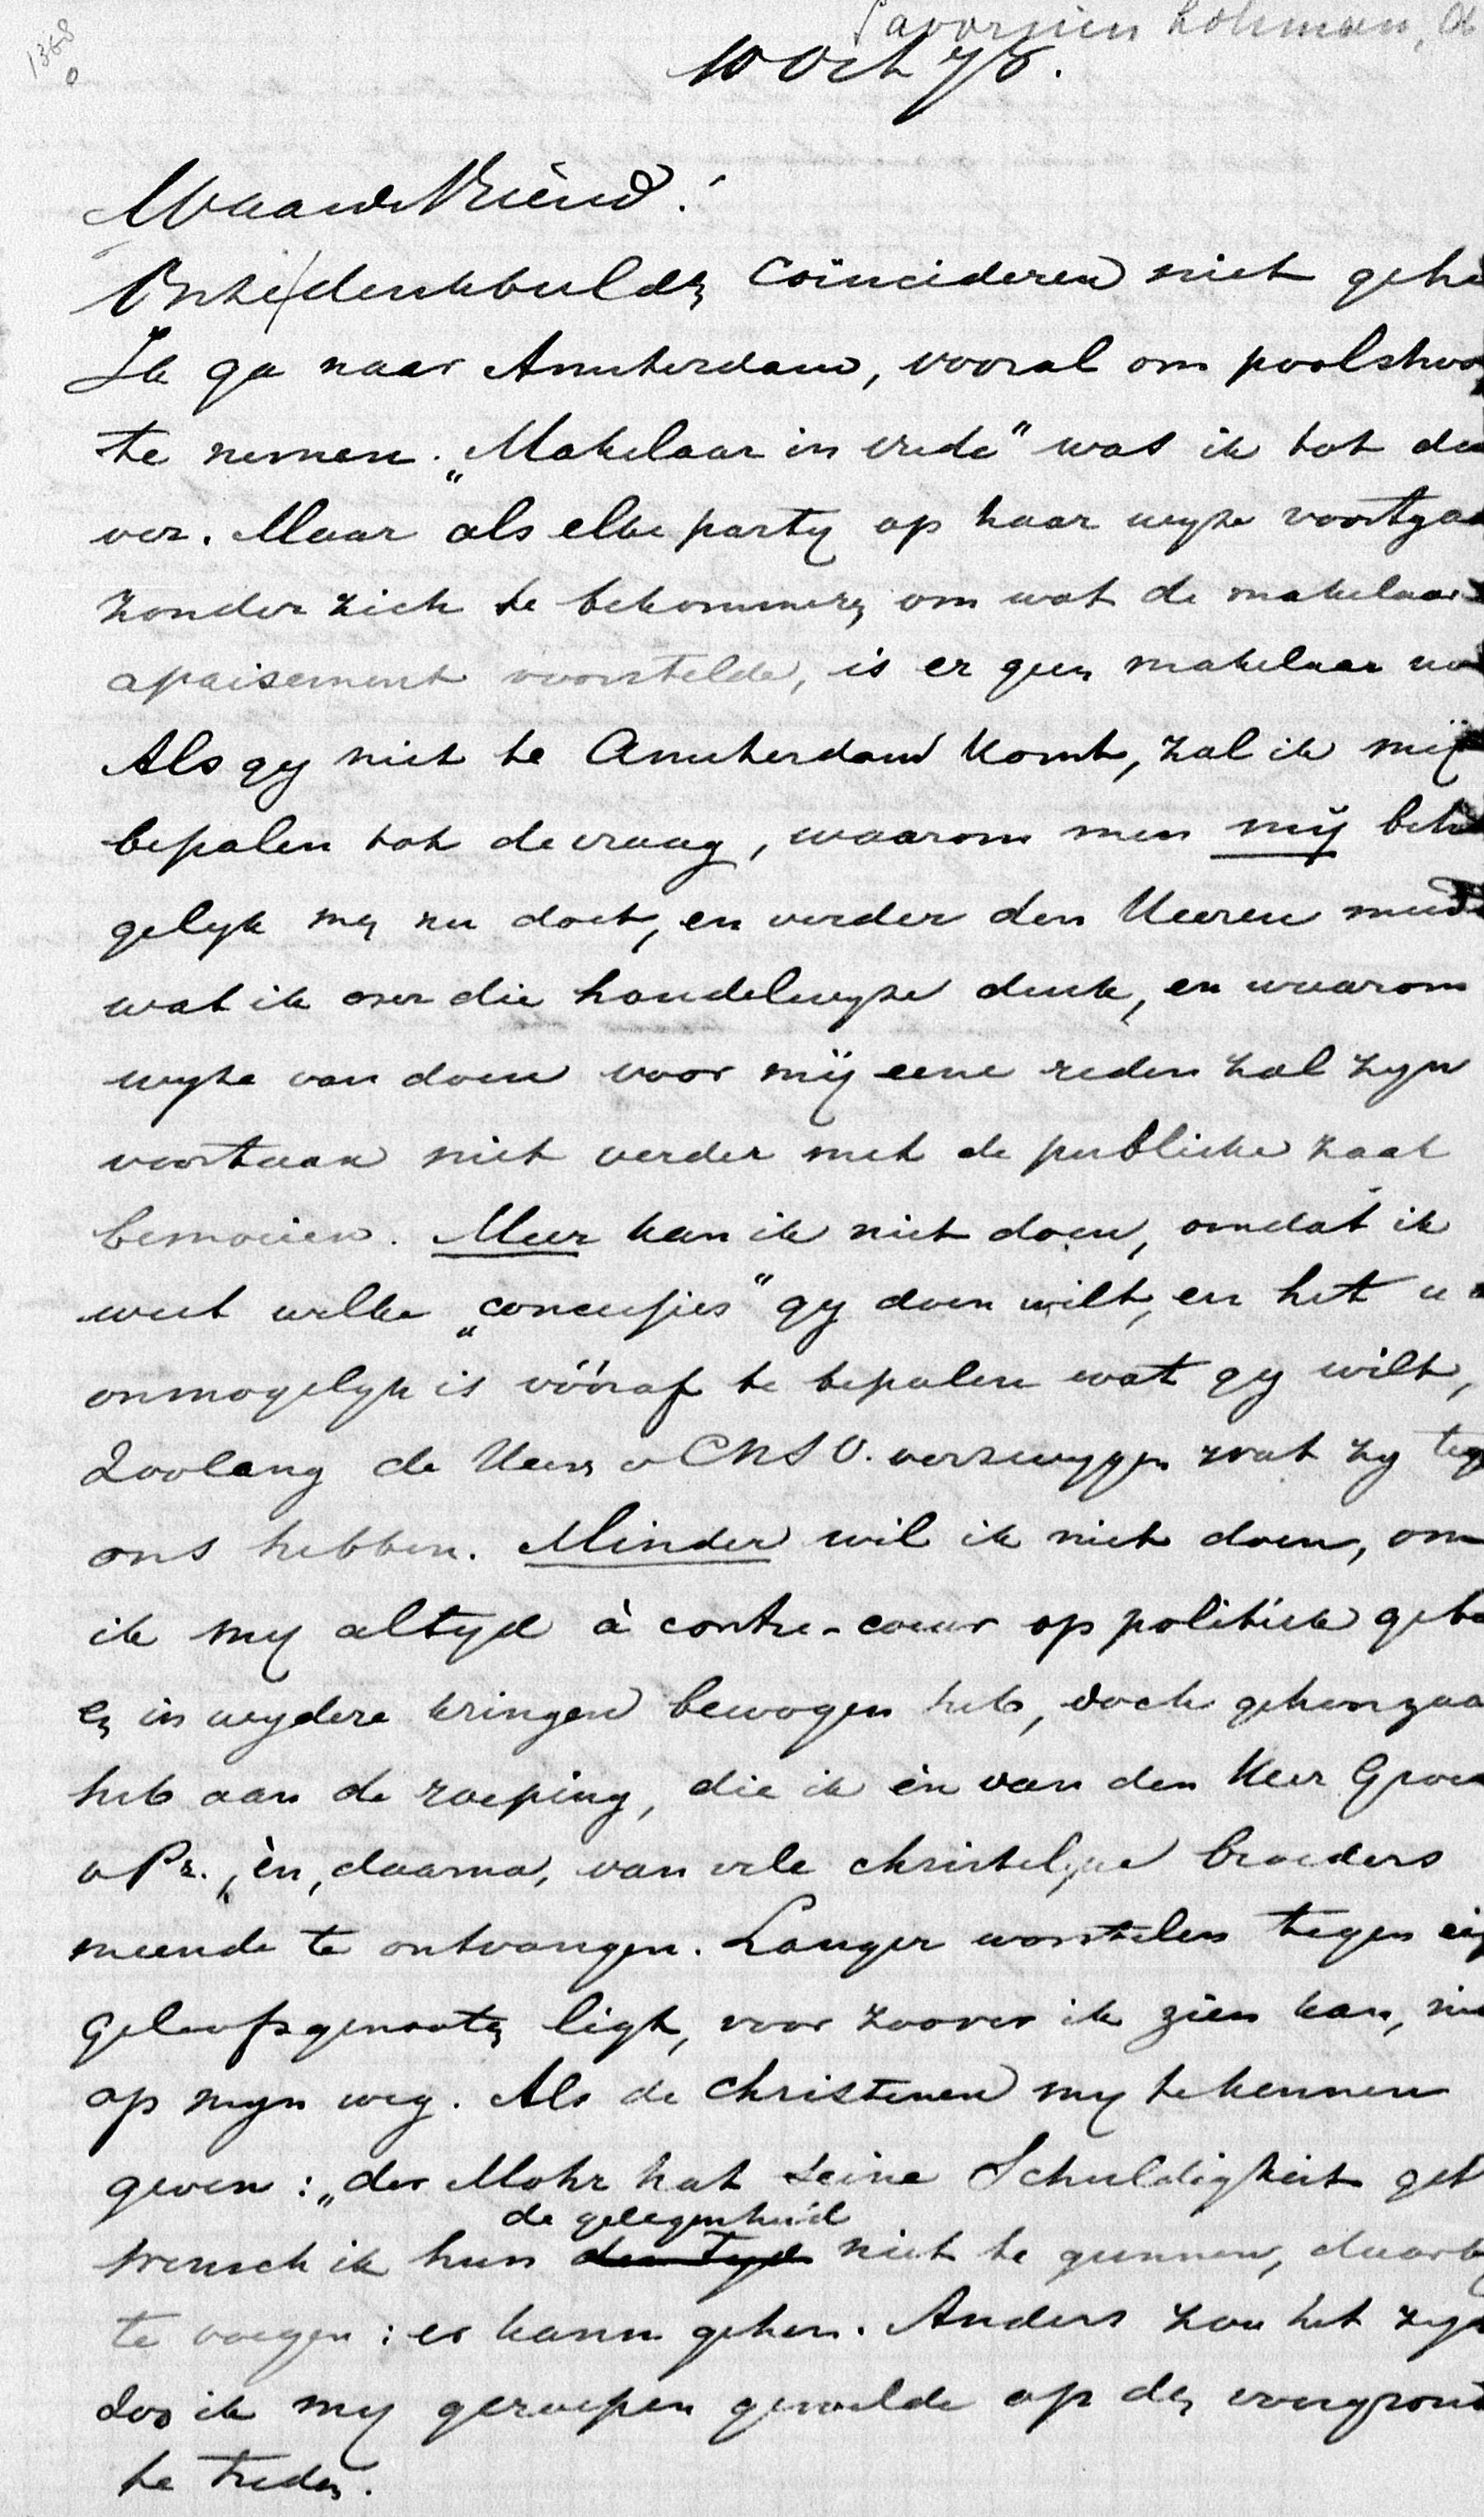 1368
0
Savornin Lohman,
10 Oct 78.
Waarde Vriend!
Onze denkbeelden coïncideren niet gehe
Ik ga naar Amsterdam, vooral om poolshoo
te nemen. „Makelaar in vrede" was ik tot da
ver. Maar als elke party op haar wyze voortgaa
zonder zich te bekommeren om wat de makelaar
apaisement voorstelde, is er geen makelaar no
Als gy niet te Amsterdam komt, zal ik mij
bepalen tot de vraag, waarom men mij beh
gelyk men nu doet, en verder den Heeren mede
wat ik over die handelwyze denk, en waarom
wyze van doen voor mij eene reden zal zyn
voortaan niet verder met de publieke zaak
bemoeien. Meer kan ik niet doen, omdat ik
weet welke „concessies" gy doen wilt, en het u
onmogelyk is vóóraf te bepalen wat gy wilt,
Zoolang de Heeren v CNSO. verzwygen wat zy teg
ons hebben. Minder wil ik niet doen, om
ik my altyd à contre-coeur op politiek gebi
en in wydere kringen bewogen heb, doch gehoorzaa
heb aan de roeping, die ik èn van den Heer Groe
v Pr., èn, daarna, van vele christelyke broeders
meende te ontvangen. Langer worstelen tegen eig
geloofsgenooten ligt, voor zoover ik zien kan, nie
op myn weg. Als de christenen my te kennen
geven: „der Mohr hat seine Schuldigkeit get
de gelegenheid
wensch ik hun den tyd niet te gunnen, daarby
te voegen: er kann gehen. Anders zou het zyn
Zoo ik my geroepen gevoelde op den voorgrond
te treden.